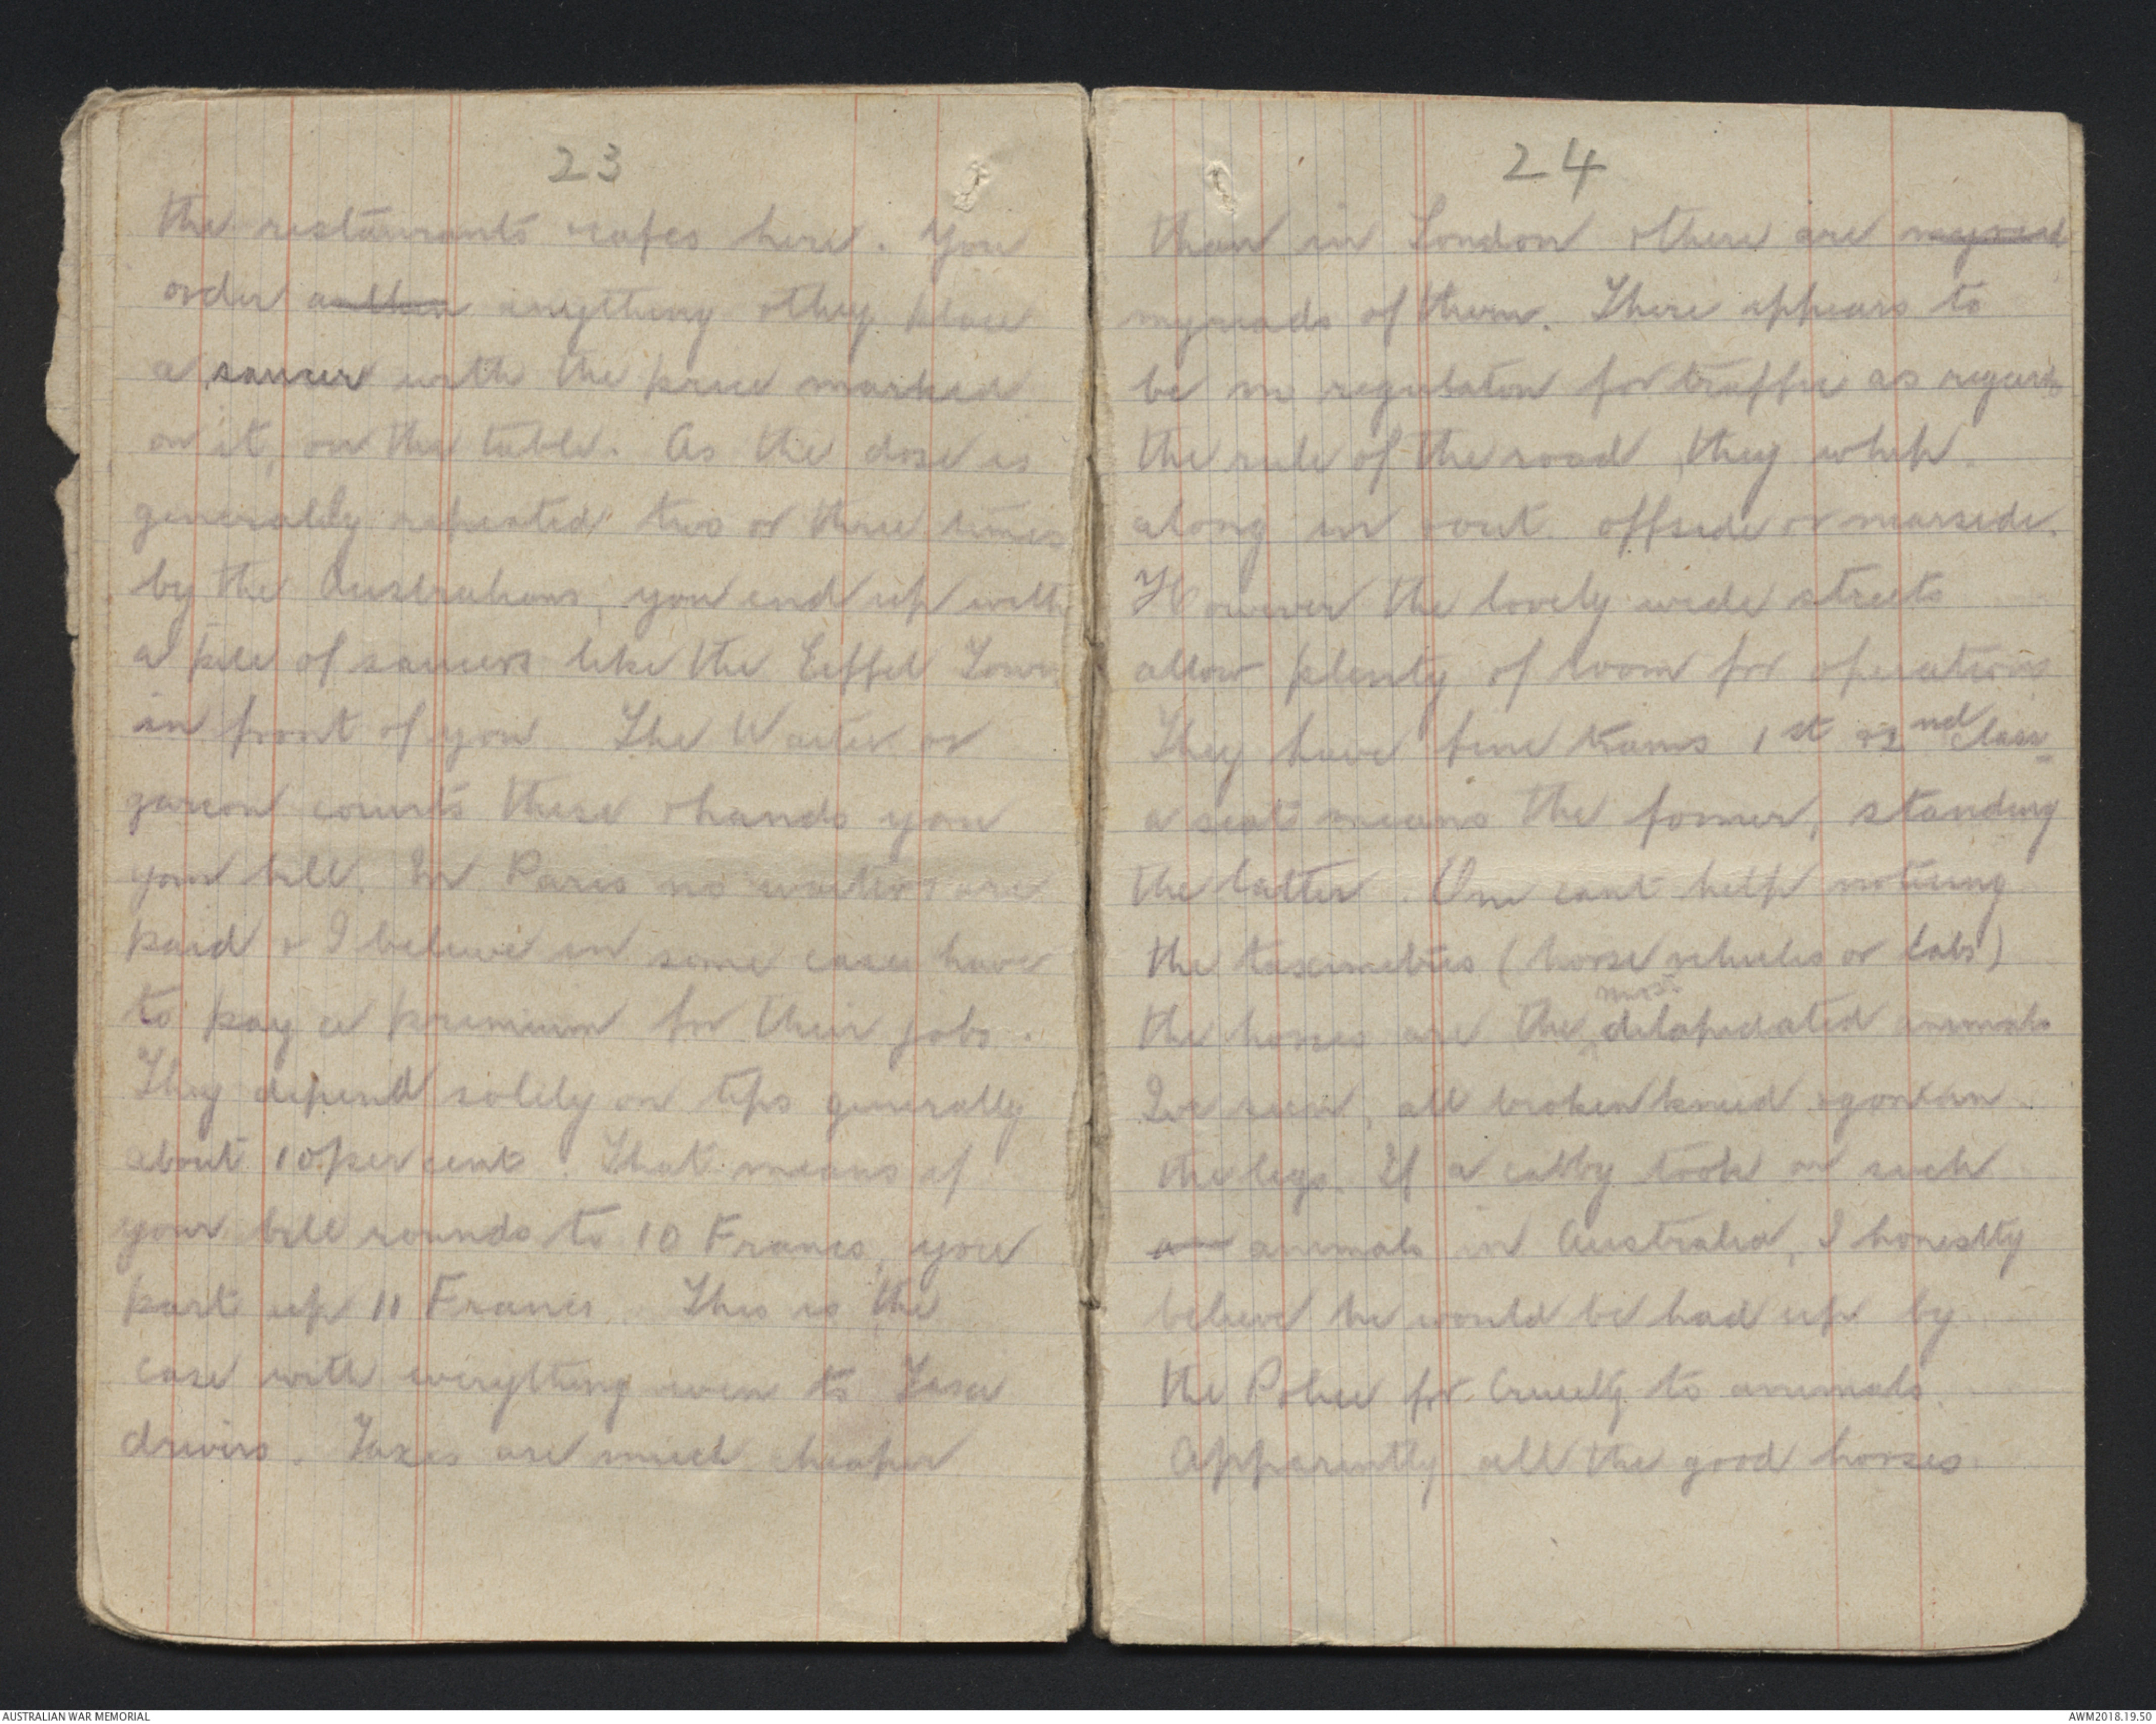 23
the restaurants & cafes here. You
order anything & they place
a saucer with the price marked
on it, on the table. As the dose is
generally repeated two or three times
by the Australians, you end up with
a pile of saucers like the Eiffel Tower
in front of you. The Waiter or
garcon counts these & hands you
your bill. In Paris no waiters are
paid & I believe in some cases have
to pay a premium for their jobs.
They depend solely on tips generally
about 10 per cent. That means if
your bill rounds to 10 Francs, you
part up 11 Francs. This is the
case with everything even to Taxi
drivers. Taxes are much cheaper
24
than in London & there are
myriads of them. There appears to
be no regulation for traffic as regards
the rule of the road, they whip
along in & out offside or nearside.
However the lovely wide streets
allow plenty of room for operations
They have fine trams 1st & 2nd class
a seat means the former, standing
the latter. One cant help noticing
the taximetres (horse vehicles or cabs)
the horses are the most delapidated animals
Ive seen, all broken kneed & gone in
the legs. If a cabby took on such
animals in Australia, I honestly
believe he would be had up by
the Police for Cruelty to animals.
Apparently all the good horses.
AUSTRALIAN WAR MEMORIAL
AWM2018.19.50